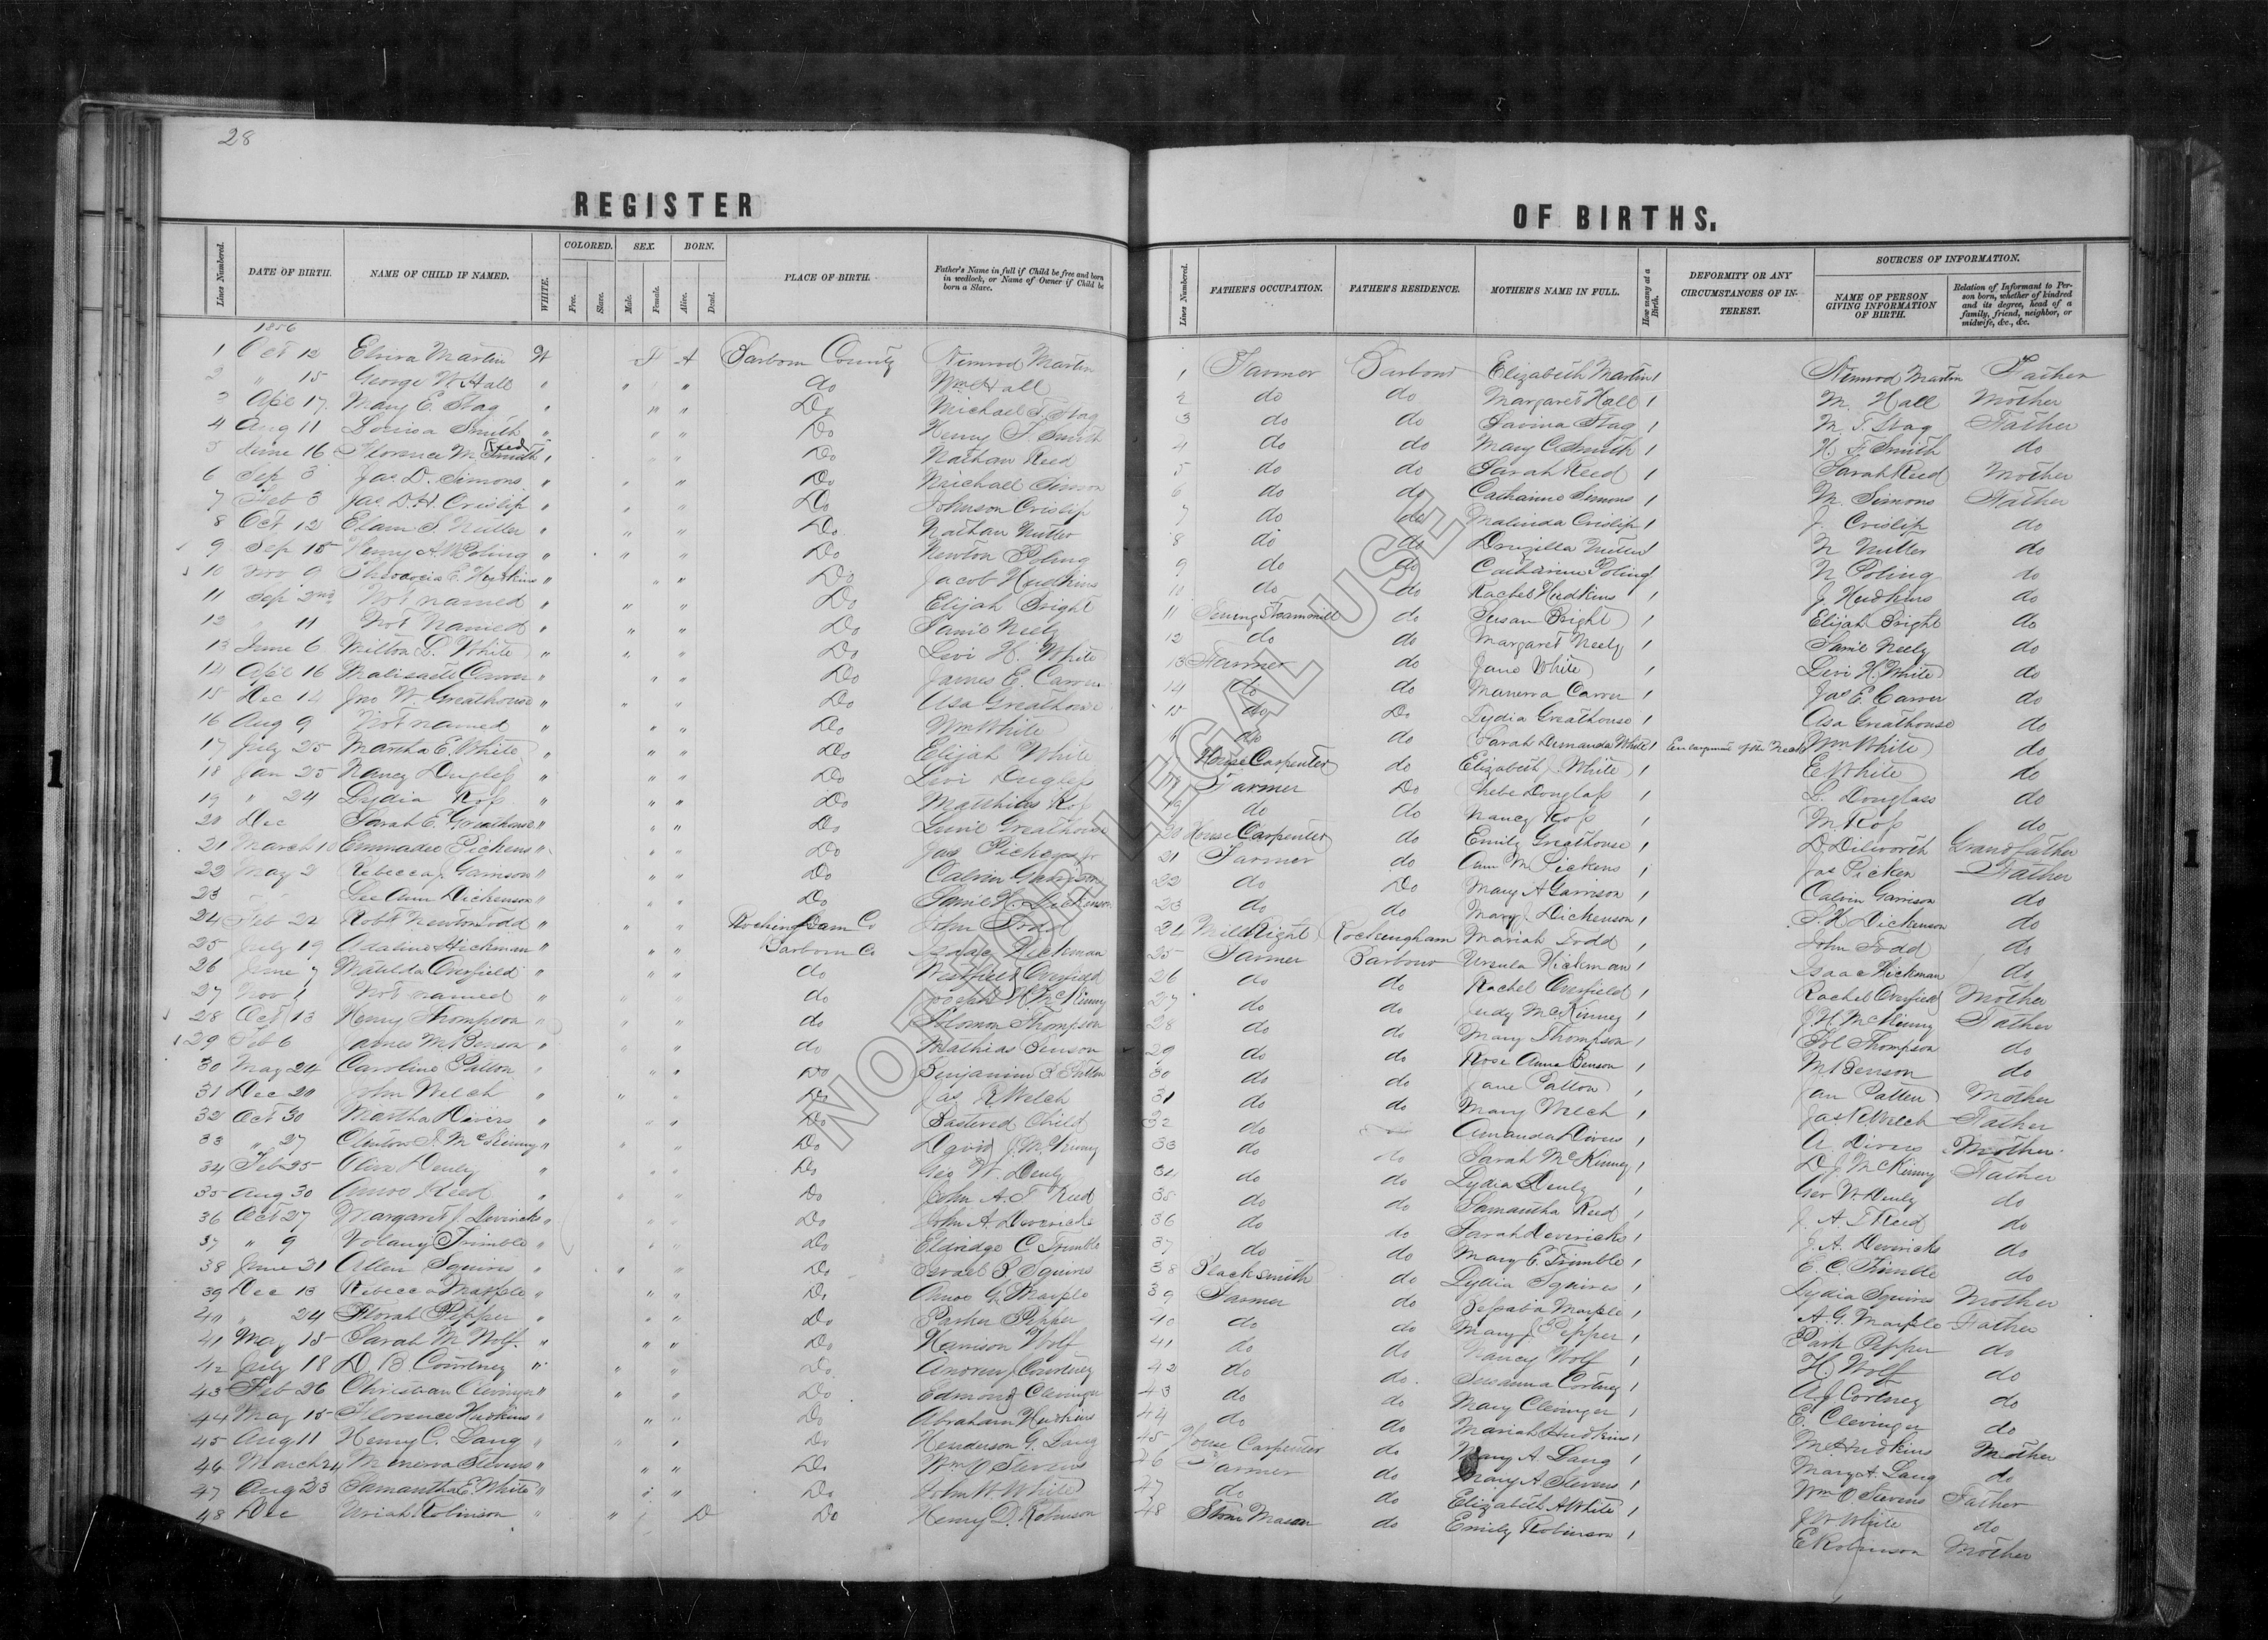 28
REGISTER OF BIRTHS.
Lines Numbered. DATE OF BIRTH. NAME OF CHILD IF NAMED. WHITE. COLORED. Free. Slave. SEX. Male. Female. BORN. Alive. Dead. PLACE OF BIRTH. Father's Name in full if Child be free and born in wedlock, or Name of Owner if Child be born a Slave.
Lines Numbered. FATHER'S OCCUPATION. FATHER'S RESIDENCE. MOTHER'S NAME IN FULL. How many at a Birth. DEFORMITY OR ANY CIRCUMSTANCES OF INTEREST. SOURCES OF INFORMATION. NAME OF PERSON GIVING INFORMATION OF BIRTH. Relation of Informant to Person born, whether of kindred and its degree, head of a family, friend, neighbor, or midwife, &c., &c.
1856
1 Oct 12 Elvira Martin W F A Barbour County Nimrod Martin 1 Farmer Barbour Elizabeth Martin 1 Nimrod Martin Father
2 " 15 George W Hall " " " do Wm Hall 2 do do Margaret Hall 1 M. Hall Mother
3 Apl 17 Mary E. Stag " " " Do Michael T. Stag 3 do do Lavina Stag 1 M. T. Stag Father
4 Aug 11 Louisa Smith " " " Do Henry F. Smith 4 do do Mary C Smith 1 H. F. Smith do
5 June 16 Florence M Smith Reed " Do Nathan Reed 5 do do Sarah Reed 1 Sarah Reed Mother
6 Sep 3 Jas D. Simons " " " Do Michael Simon 6 do do Catharine Simons 1 M. Simons Father
7 Feb 3 Jas D. H. Crislip " " " Do Johnson Crislip 7 do do Malinda Crislip 1 J. Crislip do
8 Oct 12 Elam S Nutter " " " Do Nathan Nutter 8 do do Druzilla Nutter 1 N Nutter do
9 Sep 15 Henry A. W Poling " " " Do Newton Poling 9 do do Catharine Poling 1 N Poling do
10 Nov 9 Hudkins " " " Do Jacob Hudkins 10 do do Rachel Hudkins 1 J. Hudkins do
11 Sep 2nd Not named " " " Do Elijah Bright 11 Steammill do Susan Bright 1 Elijah Bright do
12 " 11 Not Named " " " Do Saml Neely 12 do do Margaret Neely 1 Saml Neely do
13 June 6 Milton L. White " " " Do Levi H. White 13 Farmer do Jane White 1 Levi H. White do
14 Apl 16 Carver " " " Do James E. Carver 14 do do Manerva Carver 1 Jas E. Carver do
15 Dec 14 Jno W. Greathouse " " " Do Asa Greathouse 15 do Do Lydia Greathouse 1 Asa Greathouse do
16 Aug 9 Not named " " " Do Wm White do do Sarah White 1 of the Neck Wm White do
17 July 25 Martha E. White " " " Do Elijah White House Carpenter do Elizabeth J White 1 E White do
18 Jan 25 Nancy Duglass " " " Do Levi Duglass Farmer Do Douglass 1 L. Douglass do
19 " 24 Lydia Ross " " " Do Matthias Ross 19 do do Nancy Ross 1 M. Ross do
20 Dec Sarah E. Greathouse " " " Do Greathouse 20 House Carpenter do Emily Greathouse 1 D. Dilworth Grandfather
21 March 10 Pickens " " " Do Jas Pickens 21 Farmer do Ann M Pickens 1 Jas Picken Father
22 May 2 Rebecca J Garrison " " " Do Calvin Garrison 22 do Do Mary A Garrison 1 Calvin Garrison do
23 Lee Ann Dickenson " " " Do Saml H. Dickenson 23 do do Mary J. Dickenson 1 S. H Dickenson do
24 Feb 22 Robt Newton Todd " " " Rockingham Co John Todd 24 Mill Right Rockingham Mariah Todd 1 John Todd do
25 July 19 Adaline Hickman " " " Barbour Co Isaac Hickman 25 Farmer Barbour Ursula Hickman 1 Isaac Hickman do
26 June 7 Matilda Overfield " " " do Overfield 26 do do Rachel Overfield 1 Rachel Overfield Mother
27 Nov 1 Not named " " " do Joseph H. McKinny 27 do do Judy McKinney 1 J. H. McKinny Father
28 Oct 13 Henry Thompson " " " do Solomon Thompson 28 do do Mary Thompson 1 Sol Thompson do
29 Feb 6 James M. Benson " " " do Mathias Benson 29 do do Rose Anna Benson 1 M Benson do
30 May 24 Caroline Patton " " " Do Benjamin F Patton 30 do do Jane Patton 1 Jan Patten Mother
31 Dec 20 John Welch " " " Do Jas R Welch 31 do do Mary Welch 1 Jas R Welch Father
32 Oct 30 Martha Divers " " " Do Bastered Child 32 do Amanda Divers 1 A Divers Mother
33 " 27 McKinny " " " Do David J. McKinny 33 do do Sarah McKinney 1 D J McKinny Father
34 Feb 25 Olive Denly " Do Geo W. Denly 34 do do Lydia Denly 1 Geo W Denly do
35 Aug 30 Amos Reed " " " Do John A. T. Reed 35 do do Samantha Reed 1 J. A. T Reed do
36 Oct 27 Margaret J. Devericks " " " Do John A. Devericks 36 do do Sarah Devericks 1 J. A. Devericks do
37 " 9 Trimble " " " Do Eldridge C. Trimble 37 do do Mary E. Trimble 1 E. C. Trimble do
38 June 21 Allen Squires " " " Do Israel P. Squires 38 Blacksmith do Lydia Squires 1 Lydia Squires Mother
39 Dec 13 Rebecca Marple " " " Do Amos G. Marple 39 Farmer do Marple 1 A. G. Marple Father
40 " 24 Florah Pepper " " " Do Parker Pepper 40 do do Mary J Pepper 1 Park Pepper do
41 May 15 Sarah M Wolf " " " Do Harrison Wolf 41 do do Nancy Wolf 1 H. Wolf do
42 July 18 D. B. Courtney " " " Do Andrew J Courtney 42 do do Susanna Cortney 1 A J Cortney do
43 Feb 26 Christian Clevinger " " " Do Edmond Clevinger 43 do do Mary Clevinger 1 E. Clevinger do
44 May 15 Florence Hudkins " " " Do Abraham Hudkins 44 do do Mariah Hudkins 1 M Hudkins Mother
45 Aug 11 Henry C. Lang " " " Do Henderson G. Lang 45 House Carpenter do Mary A. Lang 1 Mary A. Lang do
46 March 24 Minerva Stevens " " " Do Wm O Stevens 46 Farmer do Mary A Stevens 1 Wm O Stevens Father
47 Aug 23 Samantha E. White " " " Do John W. White 47 do do Elizabeth A White 1 J W White do
48 Dec Uriah Robinson " " D Do Henry D. Robinson 48 Stone Mason do Emily Robinson 1 E Robinson Mother
NOT FOR LEGAL USE
1
1